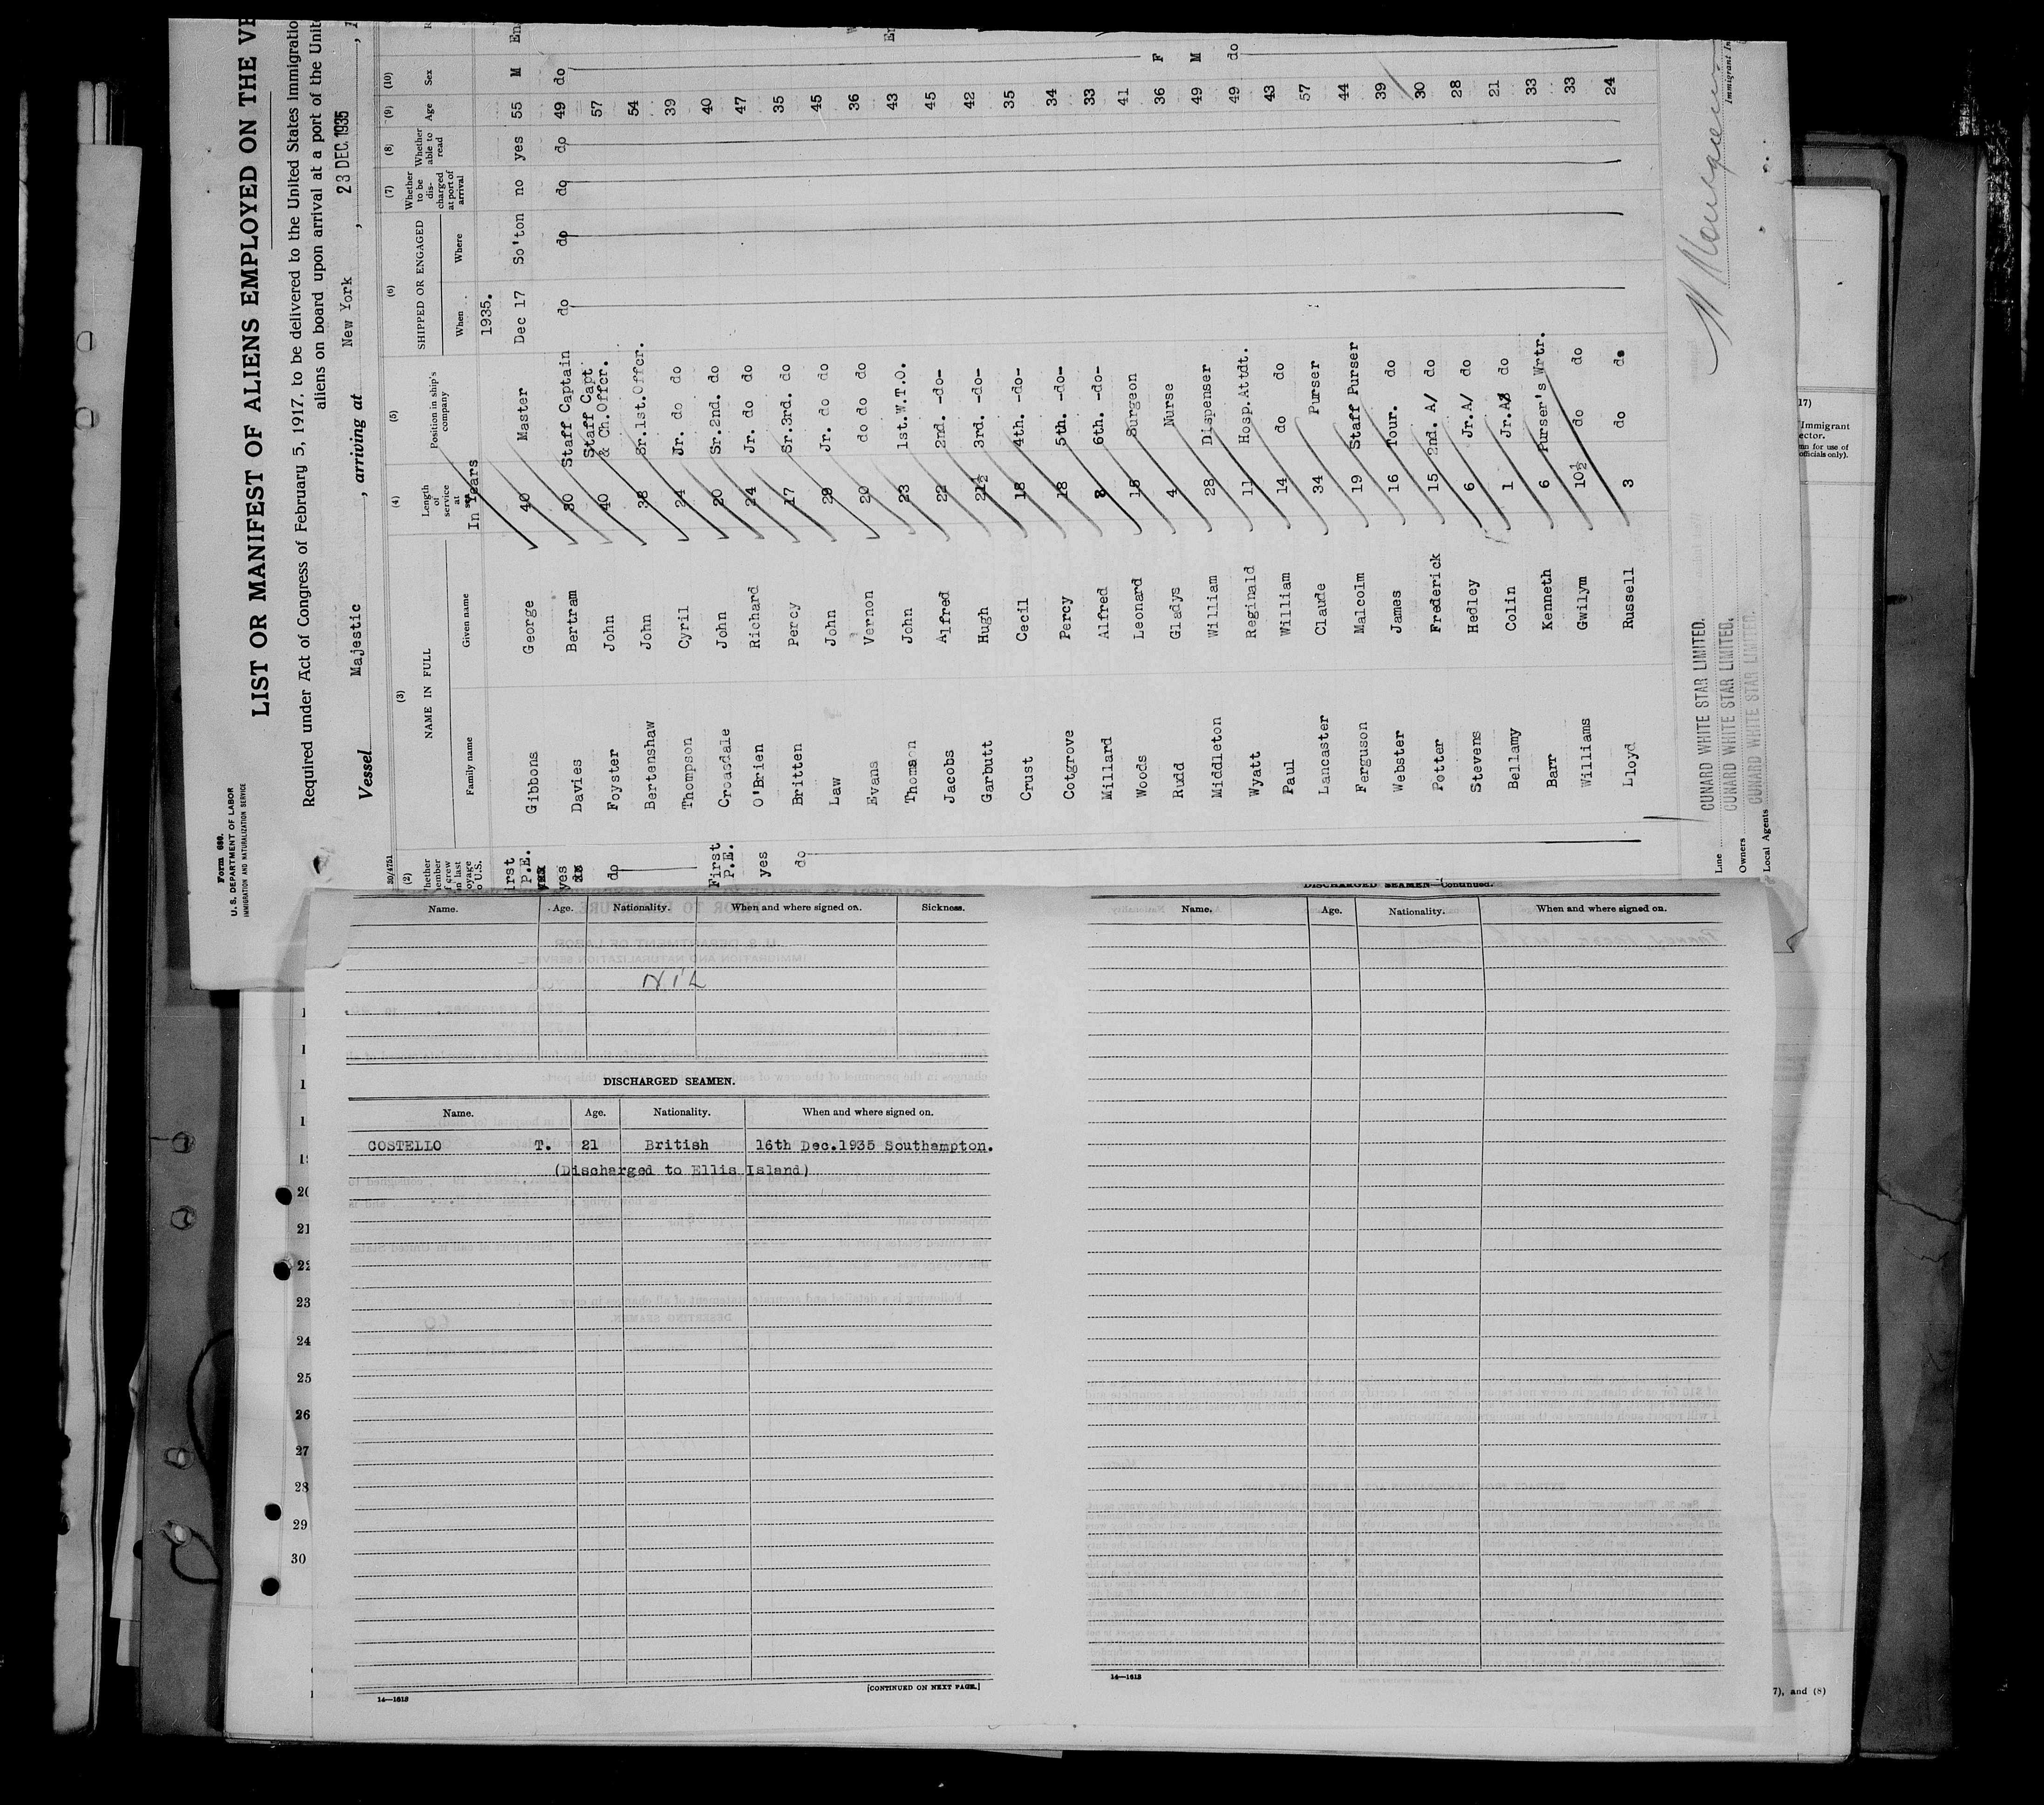 Form 680.
U. S. DEPARTMENT OF LABOR
IMMIGRATION AND NATURALIZATION SERVICE
LIST OR MANIFEST OF ALIENS EMPLOYED ON THE
Required under Act of Congress of February 5, 1917, to be delivered to the United States
aliens on board upon arrival at a port of the
Vessel Majestic, arriving at New York, 23 DEC. 1935
30/4751
(2) (3) (4) (5) (6) (7) (8) (9) (10)
NAME IN FULL
Family name Given name
Length of service at sea
In Years
Position in ship's company
SHIPPED OR ENGAGED
When Where
Whether to be discharged at port of arrival
Whether able to read
Age Sex
1935.
P.E. Gibbons George 40 Master Dec 17 So'ton no yes 55 M
yes Davies Bertram 30 Staff Captain do do do do 49 do
do Foyster John 40 Staff Capt & Ch.Offcr. 57
Bertenshaw John 38 Sr.1st.Offcr. 54
Thompson Cyril 24 Jr. do do 39
First P.E. Croasdale John 20 Sr.2nd. do 40
yes O'Brien Richard 24 Jr. do do 47
do Britten Percy 17 Sr.3rd. do 35
Law John 29 Jr. do do 45
Evans Vernon 20 do do do 36
Thomson John 23 1st.W.T.O. 43
Jacobs Alfred 22 2nd. -do- 45
Garbutt Hugh 21½ 3rd. -do- 42
Crust Cecil 18 4th. -do- 35
Cotgrove Percy 18 5th. -do- 34
Millard Alfred 8 6th. -do- 33
Woods Leonard 15 Surgeon 41
Rudd Gladys 4 Nurse 36 F
Middleton William 28 Dispenser 49 M
Wyatt Reginald 11 Hosp.Attdt. 49 do
Paul William 14 do do 43
Lancaster Claude 34 Purser 57
Ferguson Malcolm 19 Staff Purser 44
Webster James 16 Tour. do 39
Potter Frederick 15 2nd. A/ do 30
Stevens Hedley 6 Jr.A/ do 28
Bellamy Colin 1 Jr.A/ do 21
Barr Kenneth 6 Purser's Wrtr. 33
Williams Gwilym 10½ do do 33
Lloyd Russell 3 do do 24
Line CUNARD WHITE STAR LIMITED.
Owners CUNARD WHITE STAR LIMITED.
Local Agents CUNARD WHITE STAR LIMITED.
17)
Immigrant
officials only).
Name. Age. Nationality. When and where signed on. Sickness.
NIL
DISCHARGED SEAMEN.
Name. Age. Nationality. When and where signed on.
COSTELLO T. 21 British 16th Dec.1935 Southampton.
(Discharged to Ellis Island)
14—1613
[CONTINUED ON NEXT PAGE.]
DISCHARGED SEAMEN—Continued.
Name. Age. Nationality. When and where signed on.
14—1613
20
21
22
23
24
25
26
27
28
29
30
7), and (8)